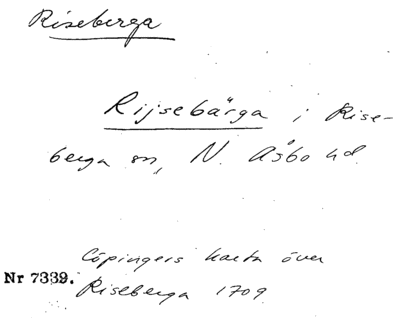 Riseberga
Rijsebärga i Rise-
berga sn, N. Åsbo hd.
Cöpingers karta över
Nr 7339.
Riseberga 1709.